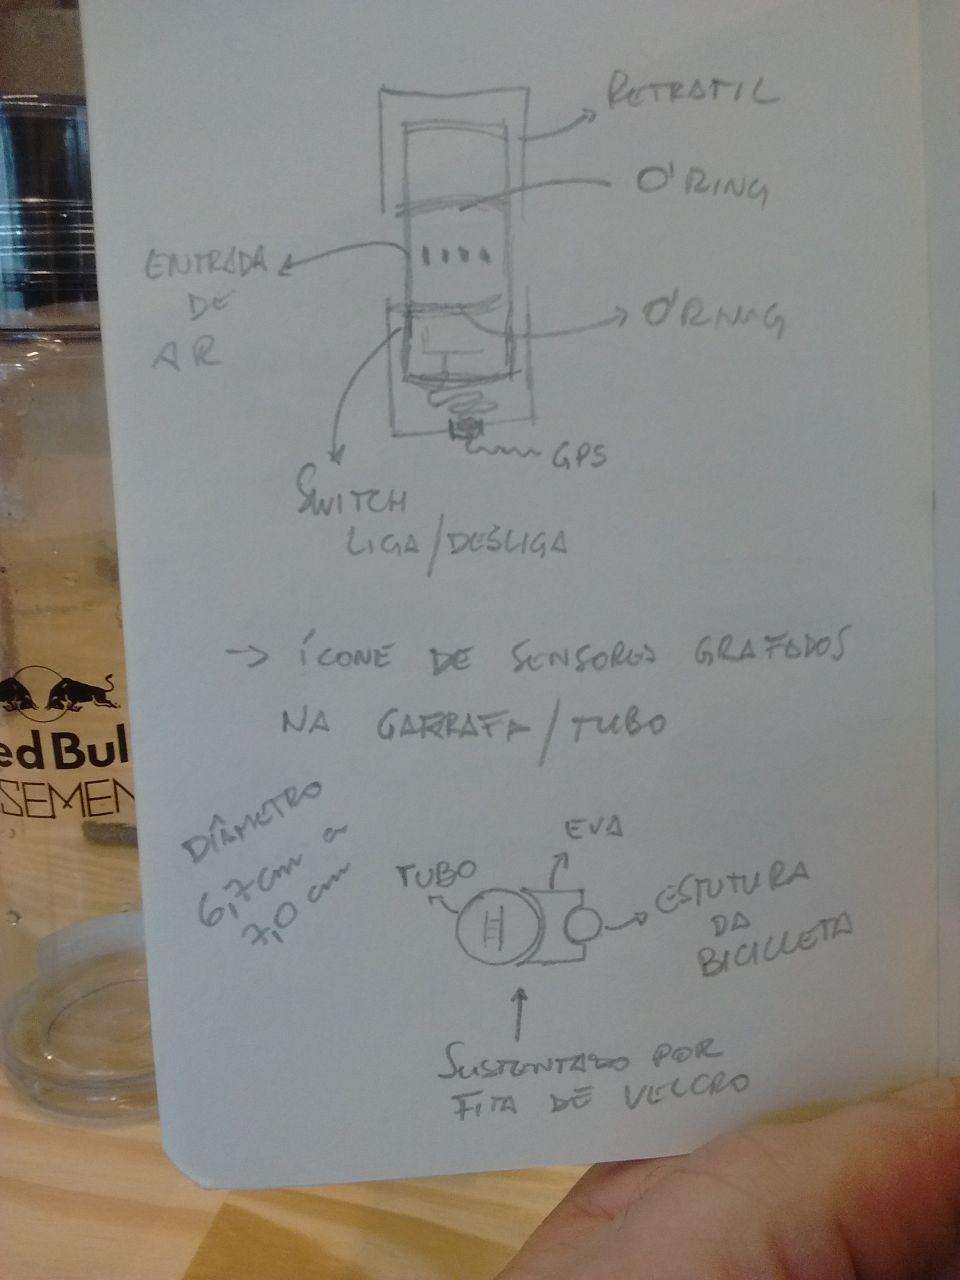 RETRATIL
O'RING
ENTRADA
DE
AR
O'RING
GPS
SWITCH
LIGA/DESLIGA
→ ÍCONE DE SENSORES GRAFADOS
NA GARRAFA/TUBO
DIÂMETRO
6,7cm a
7,0 cm
EVA
TUBO
ESTUTURA
DA
BICICLETA
SUSTENTADO POR
FITA DE VELCRO
ed Bul
SEMEN